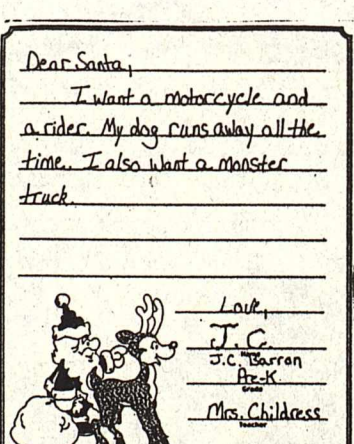 Dear Santa,
I want a motorcycle and
a rider. My dog runs away all the
time. I also want a monster
truck.
Love,
J.C.
Name
J.C. Barron
Pre-K
Grade
Mrs. Childress
Teacher